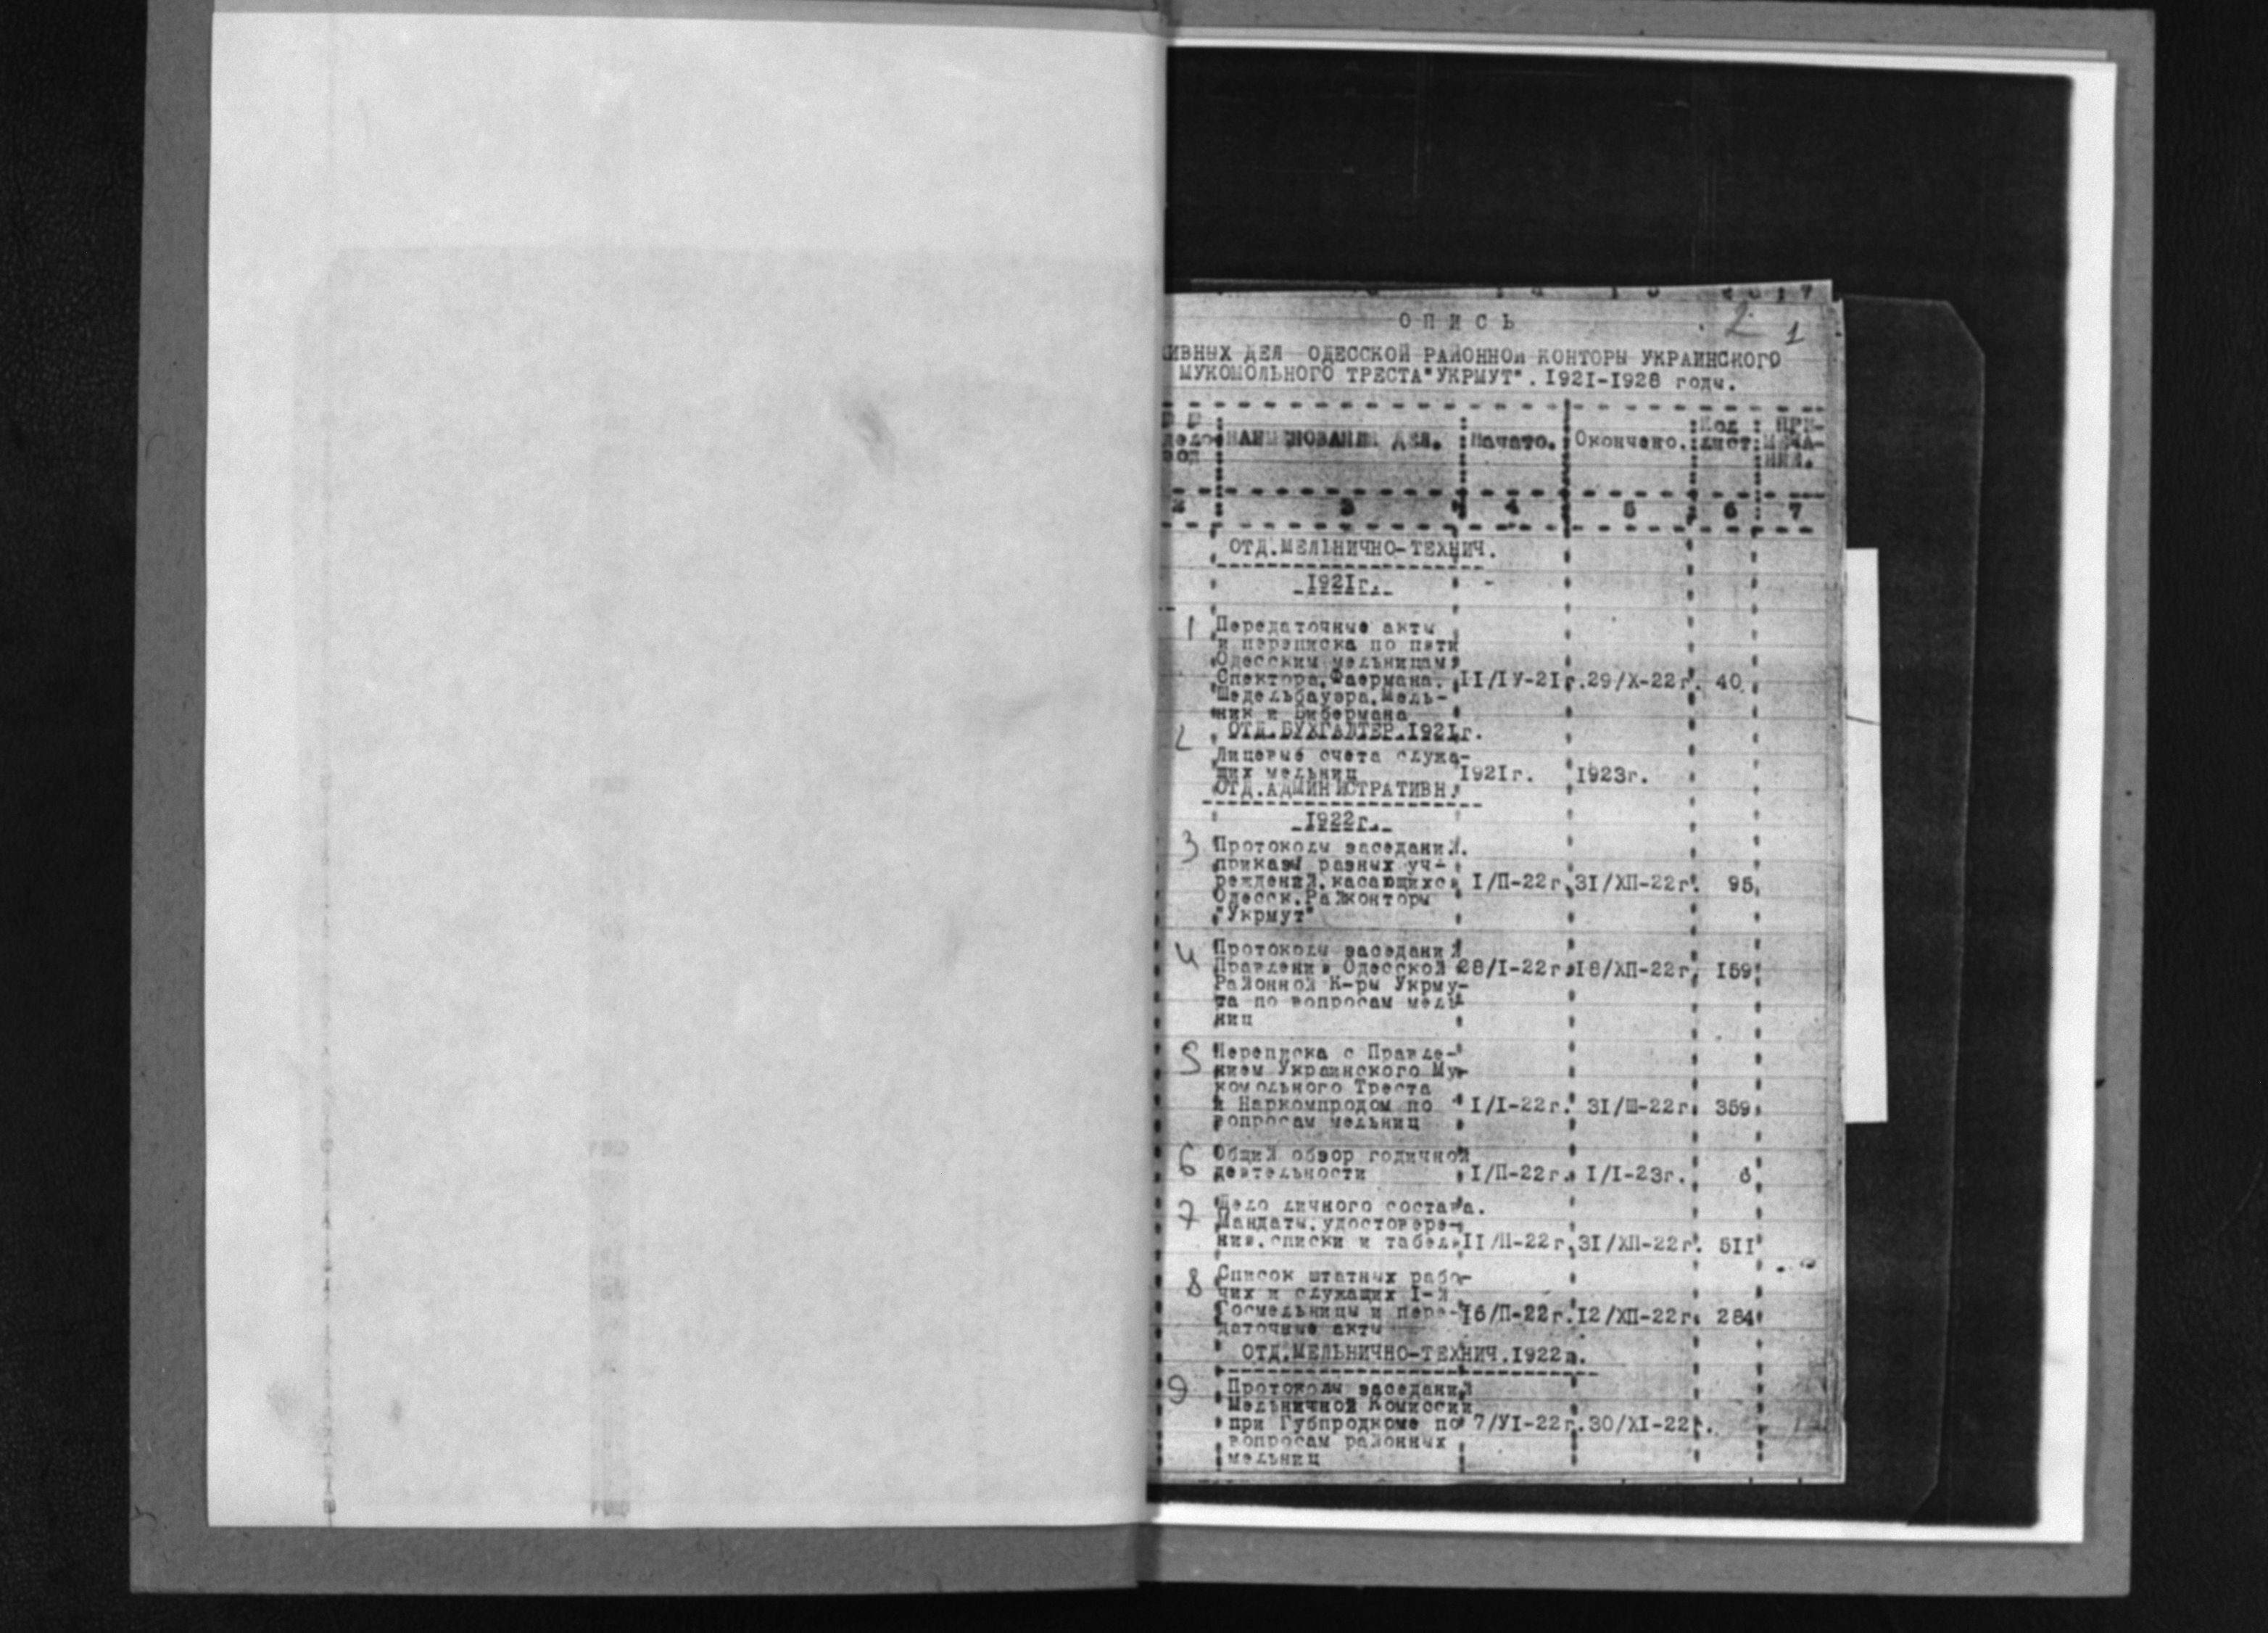 2 1
ОПИСЬ
ИВНЫХ ДЕЛ ОДЕССКОЙ РАЙОННОЙ КОНТОРЫ УКРАИНСКОГО
МУКОМОЛЬНОГО ТРЕСТА"УКРМУТ". 1921-1928 годы.
дело НАИМЕНОВАНИЕ ДЕЛ. Начато. Окончено. Кол лист ПРИ-
вод МЕЧА-
НИЯ.
2 3 4 5 6 7
ОТД.МЕЛЬНИЧНО-ТЕХНИЧ.
1921г.
1 Передаточные акты
и переписка по пяти
Одесским мельницам
Спектора,Фаермана, II/IУ-21г. 29/Х-22г. 40
Шедельбауэра,Мель-
ник и Бибермана
ОТД.БУХГАЛТЕР.1921г.
2 Лицевые счета служа-
щих мельниц 1921г. 1923г.
ОТД.АДМИНИСТРАТИВН.
1922г.
3 Протоколы заседаний.
приказы разных уч-
реждений,касающихся I/П-22г. 31/ХП-22г. 95
Одесск.Райконторы
"Укрмут"
4 Протоколы заседаний
Правления Одесской 28/I-22г. 18/ХП-22г. 159
Районной К-ры Укрму-
та по вопросам мель-
ниц
5 Переписка с Правле-
нием Украинского Му-
комольного Треста
и Наркомпродом по I/I-22г. 31/Ш-22г. 359
вопросам мельниц
6 Общий обзор годичной
деятельности I/П-22г. I/I-23г. 6
7 Дело личного состава.
Мандаты,удостовере-
ния,списки и табел II/П-22г. 31/ХП-22г. 511
8 Список штатных рабо-
чих и служащих I-й
Госмельницы и пере- 16/П-22г. 12/ХП-22г. 284
даточные акты
ОТД.МЕЛЬНИЧНО-ТЕХНИЧ.1922г.
9 Протоколы заседаний
Мельничной Комиссии
при Губпродкоме по 7/УI-22г. 30/ХI-22г.
вопросам районных
мельниц